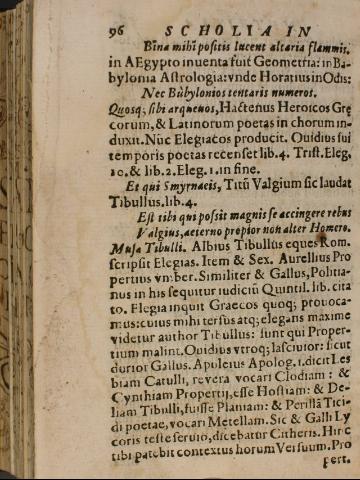 96 SCHOLIA IN
Bina mihi positis lucent altaria flammis.
in AEgypto inuenta fuit Geometria: in Ba-
bylonia Astrologia: vnde Horatius in Odis:
Nec Bàbylonios tentaris numeros.
Quosq; sibi arqueuos, Hactenus Heroicos Grę
corum, & Latinorum poetas in chorum in-
duxit. Nũc Elegiacos producit. Ouidius sui
temporis poetas recenset lib. 4. Trist. Eleg.
10. & lib. 2. Eleg. 1. in fine.
Et qui Smyrnaeis, Titũ Valgium sic laudat
Tibullus. lib. 4.
Est tibi qui possit magnis se accingere rebus
Valgius, aeterno propior non alter Homero.
Musa Tibulli. Albius Tibullus eques Rom.
scripsit Elegias. Item & Sex. Aurellius Pro
pertius vmber. Similiter & Gallus, Politia-
nus in his sequitur iudiciũ Quintil. lib. cita
to. Elegia inquit Graecos quoq; prouoca-
mus: cuius mihi tersus atq; elegans maxime
videtur author Tibullus: sunt qui Proper-
tium malint. Ouidius vtroq; lasciuior: sicut
durior Gallus. Apuleius Apolog. 1. dicit Les
biam Catulli, revera vocari Clodiam: &
Cynthiam Propertij, esse Hostiam: & De-
liam Tibulli, fuisse Planiam: & Perillã Tici-
di poetae, vocari Metellam. Sic & Galli Ly
coris teste seruio, dicebatur Citheris. Hinc
tibi patebit contextus horum Versuum. Pro
pert.